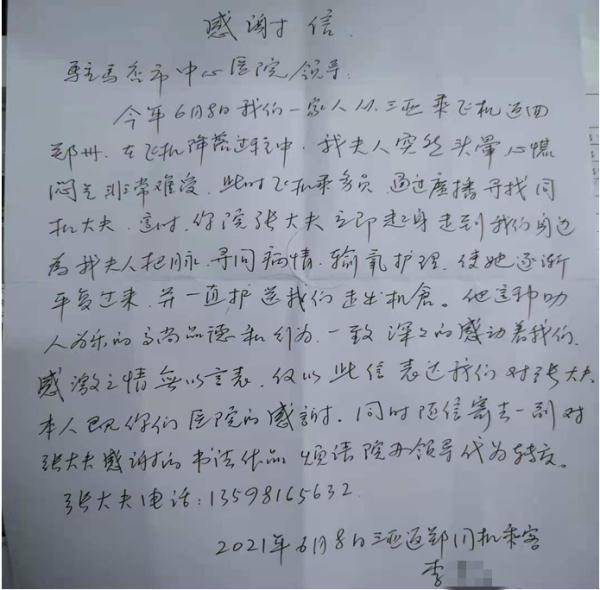 感谢信
驻马店市中心医院领导:
今年6月8日我们一家人从三亚乘飞机返回
郑州.在飞机降落过程中.我夫人突然头晕心慌
闷气非常难受.此时飞机乘务员通过广播寻找同
机大夫.这时.你院张大夫立即起身走到我们身边
为我夫人把脉.寻问病情.输氧护理.使她逐渐
平复过来.并一直护送我们走出机仓。他这种助
人为乐的高尚品德和行为.一致深深的感动着我们.
感激之情无以言表.仅以此信表达我们对张大夫
本人及你们医院的感谢.同时随信寄去一副对
张大夫感谢的书法作品 烦请院办领导代为转交。
张大夫电话:13598165632
2021年6月8日三亚返郑同机乘客
李